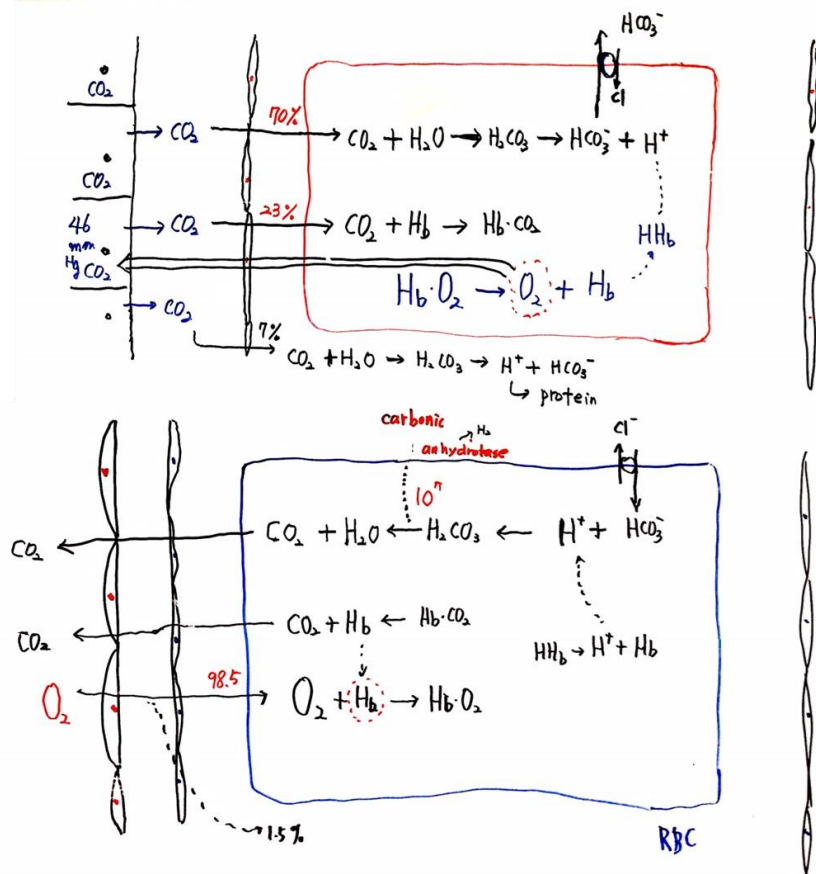 HCO₃⁻
Cl
CO₂
70%
CO₂
CO₂ + H₂O → H₂CO₃ → HCO₃⁻ + H⁺
CO₂
23%
46
mm
Hg
CO₂
CO₂ + Hb → Hb·CO₂
HHb
CO₂
Hb·O₂ → O₂ + Hb
CO₂
7%
CO₂ + H₂O → H₂CO₃ → H⁺ + HCO₃⁻
↳ protein
carbonic
H₂
anhydrotase
Cl⁻
10⁷
CO₂
CO₂ + H₂O ← H₂CO₃ ← H⁺ + HCO₃⁻
CO₂
CO₂ + Hb ← Hb·CO₂
HHb → H⁺ + Hb
O₂
98.5
O₂ + Hb → Hb·O₂
1.5%
RBC